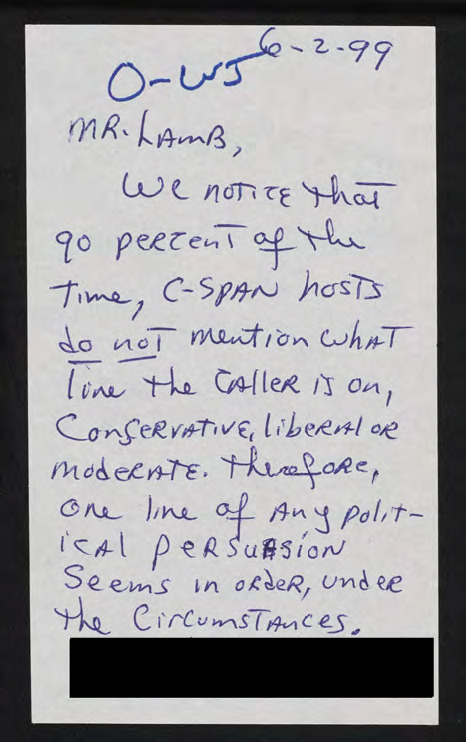 6-2-99
O-WJ
MR. LAMB,
We notice that
90 percent of the
time, C-SPAN hosts
do not mention what
line the caller is on,
Conservative, liberal or
moderate. Therefore,
one line of any polit-
ical persuasion
Seems in order, under
the Circumstances.